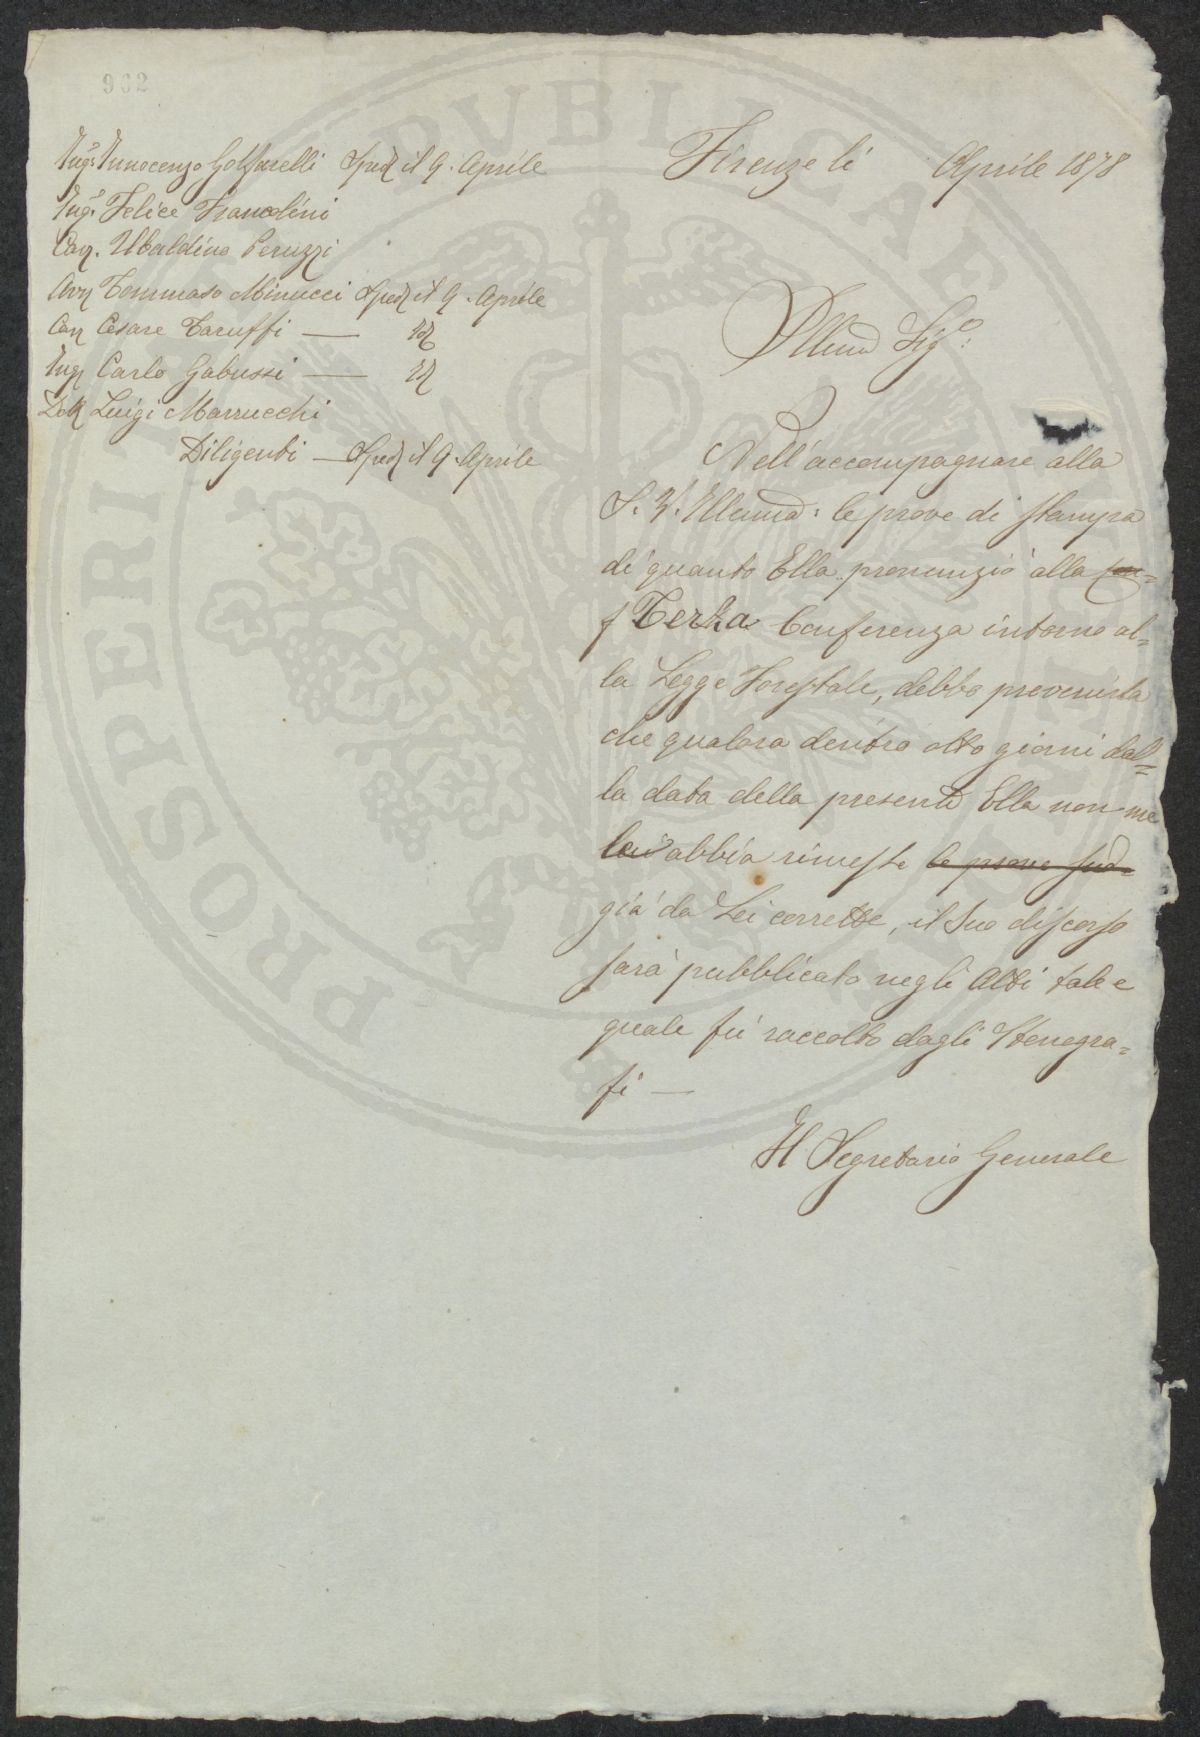 962
Ing.e Innocenzo Golfarelli Sped. il 9. Aprile
Ing.e Felice Francolini
Cav. Ubaldino Peruzzi
Avv. Tommaso Minucci Sped. il 9. Aprile
Cav. Cesare Taruffi — Id.
Ing. Carlo Gabussi — Id.
Dott. Luigi Marrucchi
Diligenti — Sped. il 9 Aprile
Firenze li Aprile 1878
Illmo Sig.e:
Nell'accompagnare alla
S. V. Illma: le prove di stampa
di quanto Ella pronunziò alla
Terza Conferenza intorno al=
la Legge Forestale, debbo prevenirla
che qualora dentro otto giorni dal=
la data della presente Ella non me
le abbia rimesse le prove sud=
già da Lei corrette, il Suo discorso
sarà pubblicato negli Atti tale e
quale fu raccolto dagli Stenogra=
fi —
Il Segretario Generale
PROSPERITATI PUBLICAE AUGENDAE